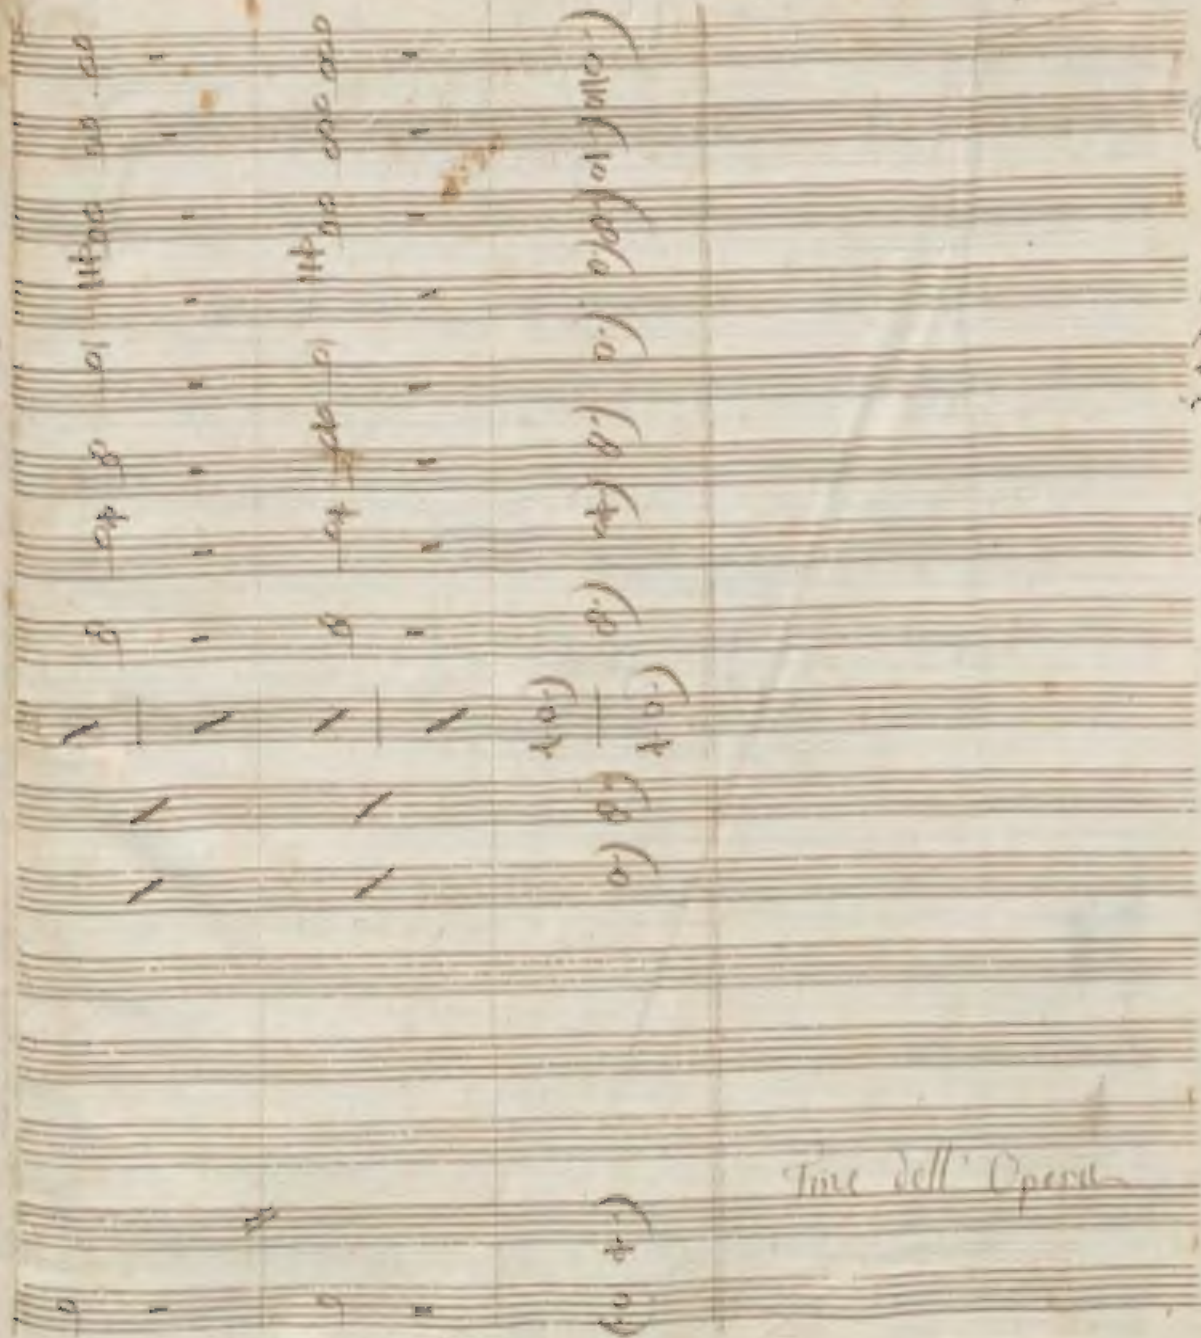 Fine dell' Opera